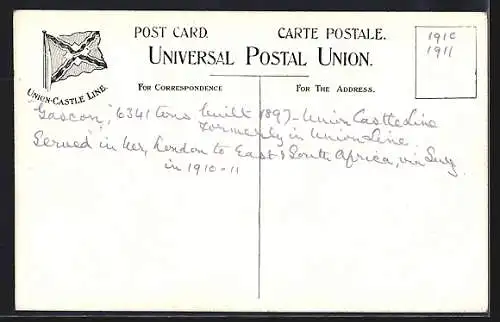 POST CARD. CARTE POSTALE.
UNIVERSAL POSTAL UNION.
UNION-CASTLE LINE.
FOR CORRESPONDENCE
FOR THE ADDRESS.
1910
1911
"Gascon", 6341 tons built 1897 - Union Castle Line
formerly in Union Line.
Served in her, London to East & South Africa, via Suez
in 1910-11